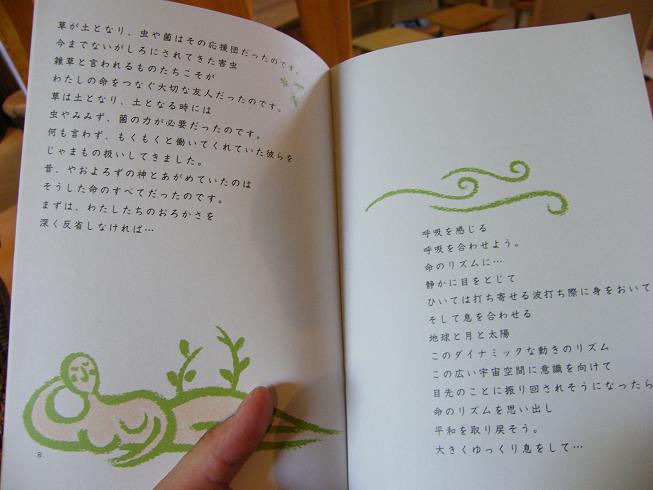 草が土となり、虫や菌はその応援団だったのです。
今までないがしろにされてきた害虫
雑草と言われるものたちこそが
わたしの命をつなぐ大切な友人だったのです。
草は土となり、土となる時には
虫やみみず、菌の力が必要だったのです。
何も言わず、もくもくと働いてくれていた彼らを
じゃまもの扱いしてきました。
昔、やおよろずの神とあがめていたのは
そうした命のすべてだったのです。
まずは、わたしたちのおろかさを
深く反省しなければ…
8
呼吸を感じる
呼吸を合わせよう。
命のリズムに…
静かに目をとじて
ひいては打ち寄せる波打ち際に身をおいて
そして息を合わせる
地球と月と太陽
このダイナミックな動きのリズム
この広い宇宙空間に意識を向けて
目先のことに振り回されそうになったら
命のリズムを思い出し
平和を取り戻そう。
大きくゆっくり息をして…